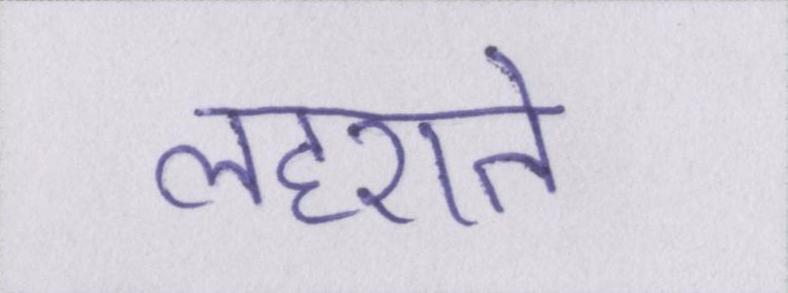 लहराते